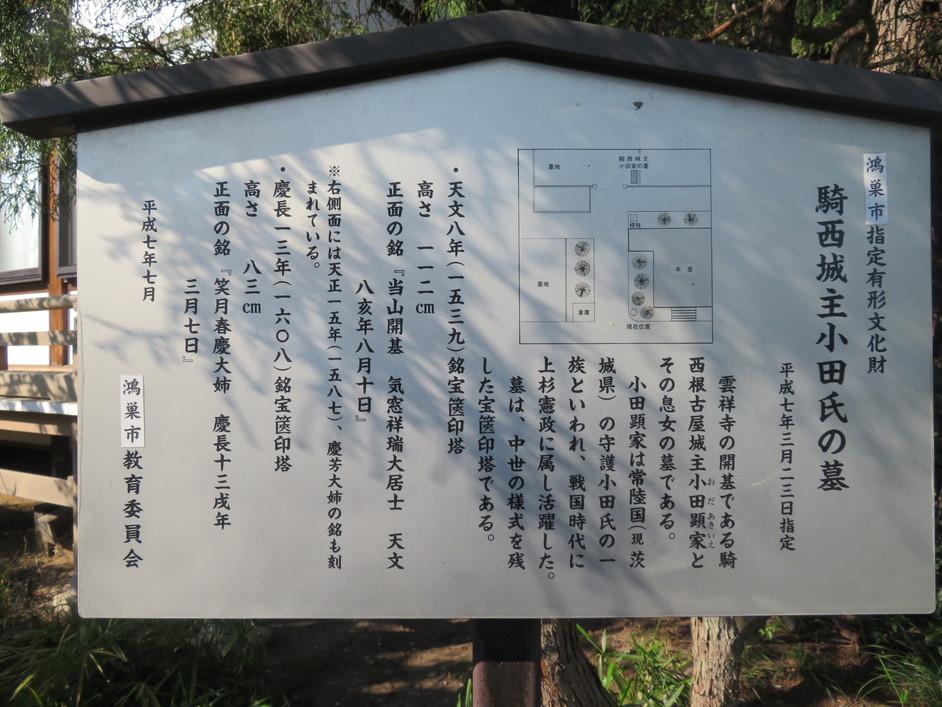 鴻巣市指定有形文化財
騎西城主小田氏の墓
平成七年三月二三日指定
雲祥寺の開基である騎
西根古屋城主小田顕家と
おだあきいえ
その息女の墓である。
小田顕家は常陸国(現茨
城県)の守護小田氏の一
族といわれ、戦国時代に
上杉憲政に属し活躍した。
墓は、中世の様式を残
した宝篋印塔である。
墓地
騎西城主
小田家の墓
標柱
本堂
墓地
倉庫
現在位置
・天文八年(一五三九)銘宝篋印塔
高さ 一一二cm
正面の銘『当山開基 気窓祥瑞大居士 天文
八亥年八月十日』
※右側面には天正一五年(一五八七)、慶芳大姉の銘も刻
まれている。
・慶長一三年(一六〇八)銘宝篋印塔
高さ 八三cm
正面の銘『笑月春慶大姉 慶長十三戌年
三月七日』
平成七年七月
鴻巣市教育委員会